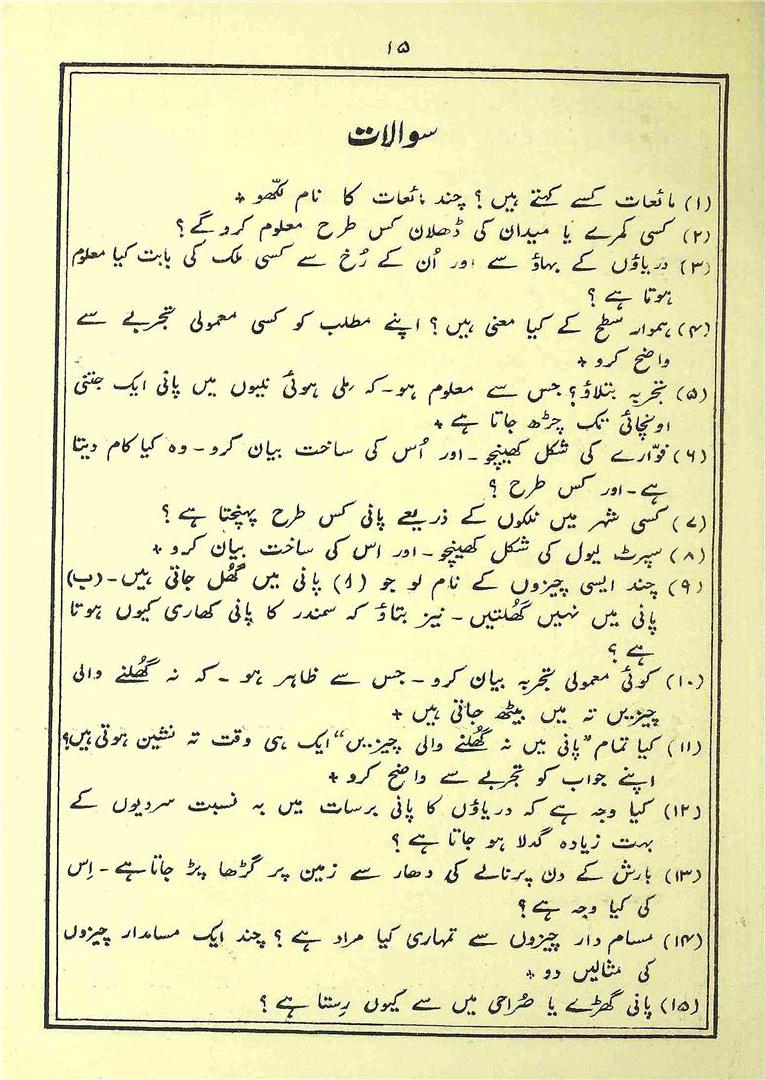 ۱۵
سوالات
(۱) مائعات کسے کہتے ہیں؟ چند مائعات کا نام لکھّو +
(۲) کسی کمرے یا میدان کی ڈھلان کس طرح معلوم کرو گے؟
(۳) دریاؤں کے بہاؤ سے اور اُن کے رُخ سے کسی ملک کی بابت کیا معلوم
ہوتا ہے؟
(۴) ہموار سطح کے کیا معنی ہیں؟ اپنے مطلب کو کسی معمولی تجربے سے
واضح کرو +
(۵) تجربہ بتلاؤ؟ جس سے معلوم ہو۔ کہ مِلی ہوئی نلیوں میں پانی ایک جتنی
اونچائی تک چڑھ جاتا ہے +
(۶) فوّارے کی شکل کھینچو۔ اور اُس کی ساخت بیان کرو۔ وہ کیا کام دیتا
ہے۔ اور کس طرح؟
(۷) کسی شہر میں نلکوں کے ذریعے پانی کس طرح پہنچتا ہے؟
(۸) سپرٹ لیول کی شکل کھینچو۔ اور اس کی ساخت بیان کرو +
(۹) چند ایسی چیزوں کے نام لو جو (ا) پانی میں گھُل جاتی ہیں۔ (ب)
پانی میں نہیں گھُلتیں۔ نیز بتاؤ کہ سمندر کا پانی کھاری کیوں ہوتا
ہے؟
(۱۰) کوئی معمولی تجربہ بیان کرو۔ جس سے ظاہر ہو۔ کہ نہ گھُلنے والی
چیزیں تہ میں بیٹھ جاتی ہیں +
(۱۱) کیا تمام "پانی میں نہ گھُلنے والی چیزیں" ایک ہی وقت تہ نشین ہوتی ہیں؟
اپنے جواب کو تجربے سے واضح کرو +
(۱۲) کیا وجہ ہے کہ دریاؤں کا پانی برسات میں بہ نسبت سردیوں کے
بہت زیادہ گدلا ہو جاتا ہے؟
(۱۳) بارش کے دن پرنالے کی دھار سے زمین پر گڑھا پڑ جاتا ہے۔ اِس
کی کیا وجہ ہے؟
(۱۴) مسام دار چیزوں سے تمہاری کیا مراد ہے؟ چند ایک مسامدار چیزوں
کی مثالیں دو +
(۱۵) پانی گھڑے یا صُراحی میں سے کیوں رِستا ہے؟